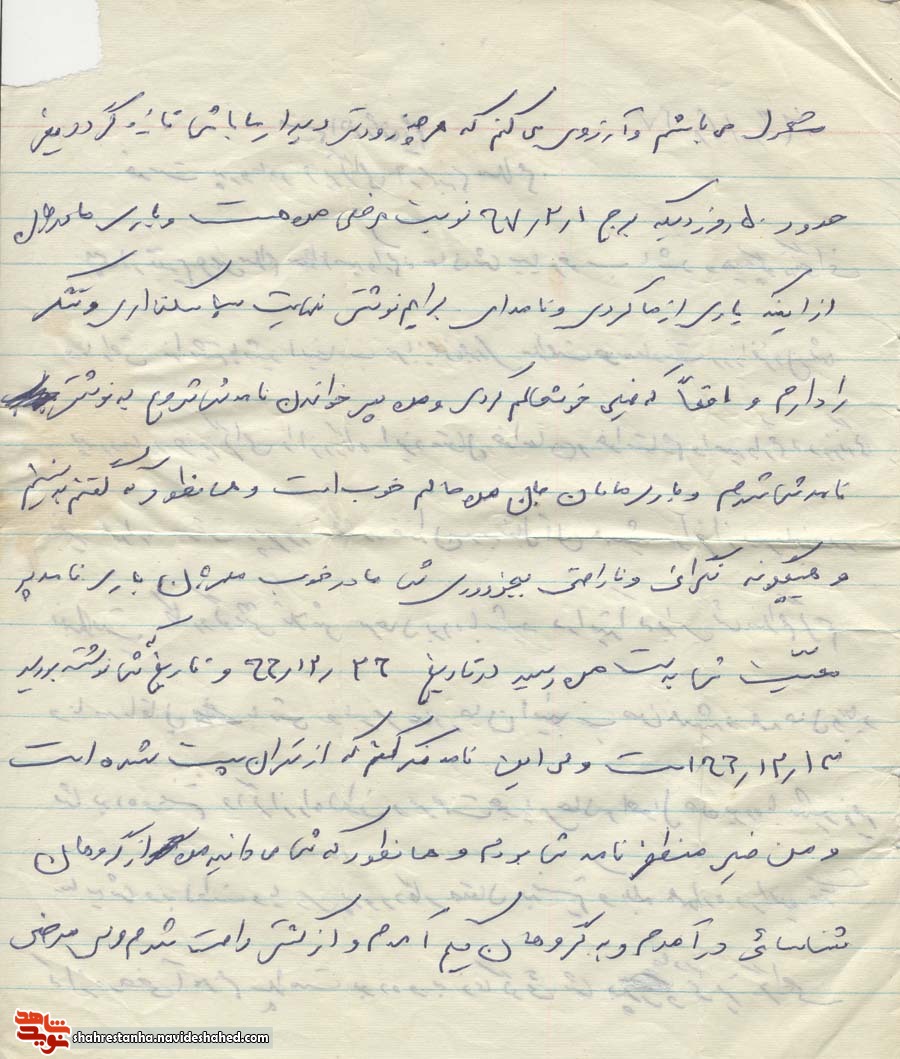 مشغول می باشم و آرزوی می کنم که هر چه زودتر دیدارها با شما تازه گردد یعنی
حدود ۵۰ روز دیگه برج ۶۷٫۲٫۱ نوبت مرخصی من هست و باری مامان
از اینکه یادی از ما کردی و نامه ای برایم نوشتی نهایت سپاسگذاری و تشکر
را دارم و واقعاً که خیلی خوشحالم کردی و من پس خواندن نامه شما شروع به نوشتن
نامه شما شدم و باری مامان جان من حالم خوب است و همانطور که گفتم سالم
و هیچگونه نگرانی و ناراحتی بجز دوری شما مادر خوب و مهربان باری نامه پر
محبت شما به دست من رسید در تاریخ ۶۶٫۱۲٫۲۶ و تاریخی که شما نوشته بودید
۶۶٫۱۲٫۱۳ است ولی این نامه فکر کنم که از تهران پست شده است
و من خیلی منتظر نامه شما بودم و همانطور که شما می دانید من از گروهان
شناسائی در آمدم و به گروهان یکم آمدم و از گشتی راحت شدم ولی مرخصی
شاهد نوید
shahrestanha.navideshahed.com